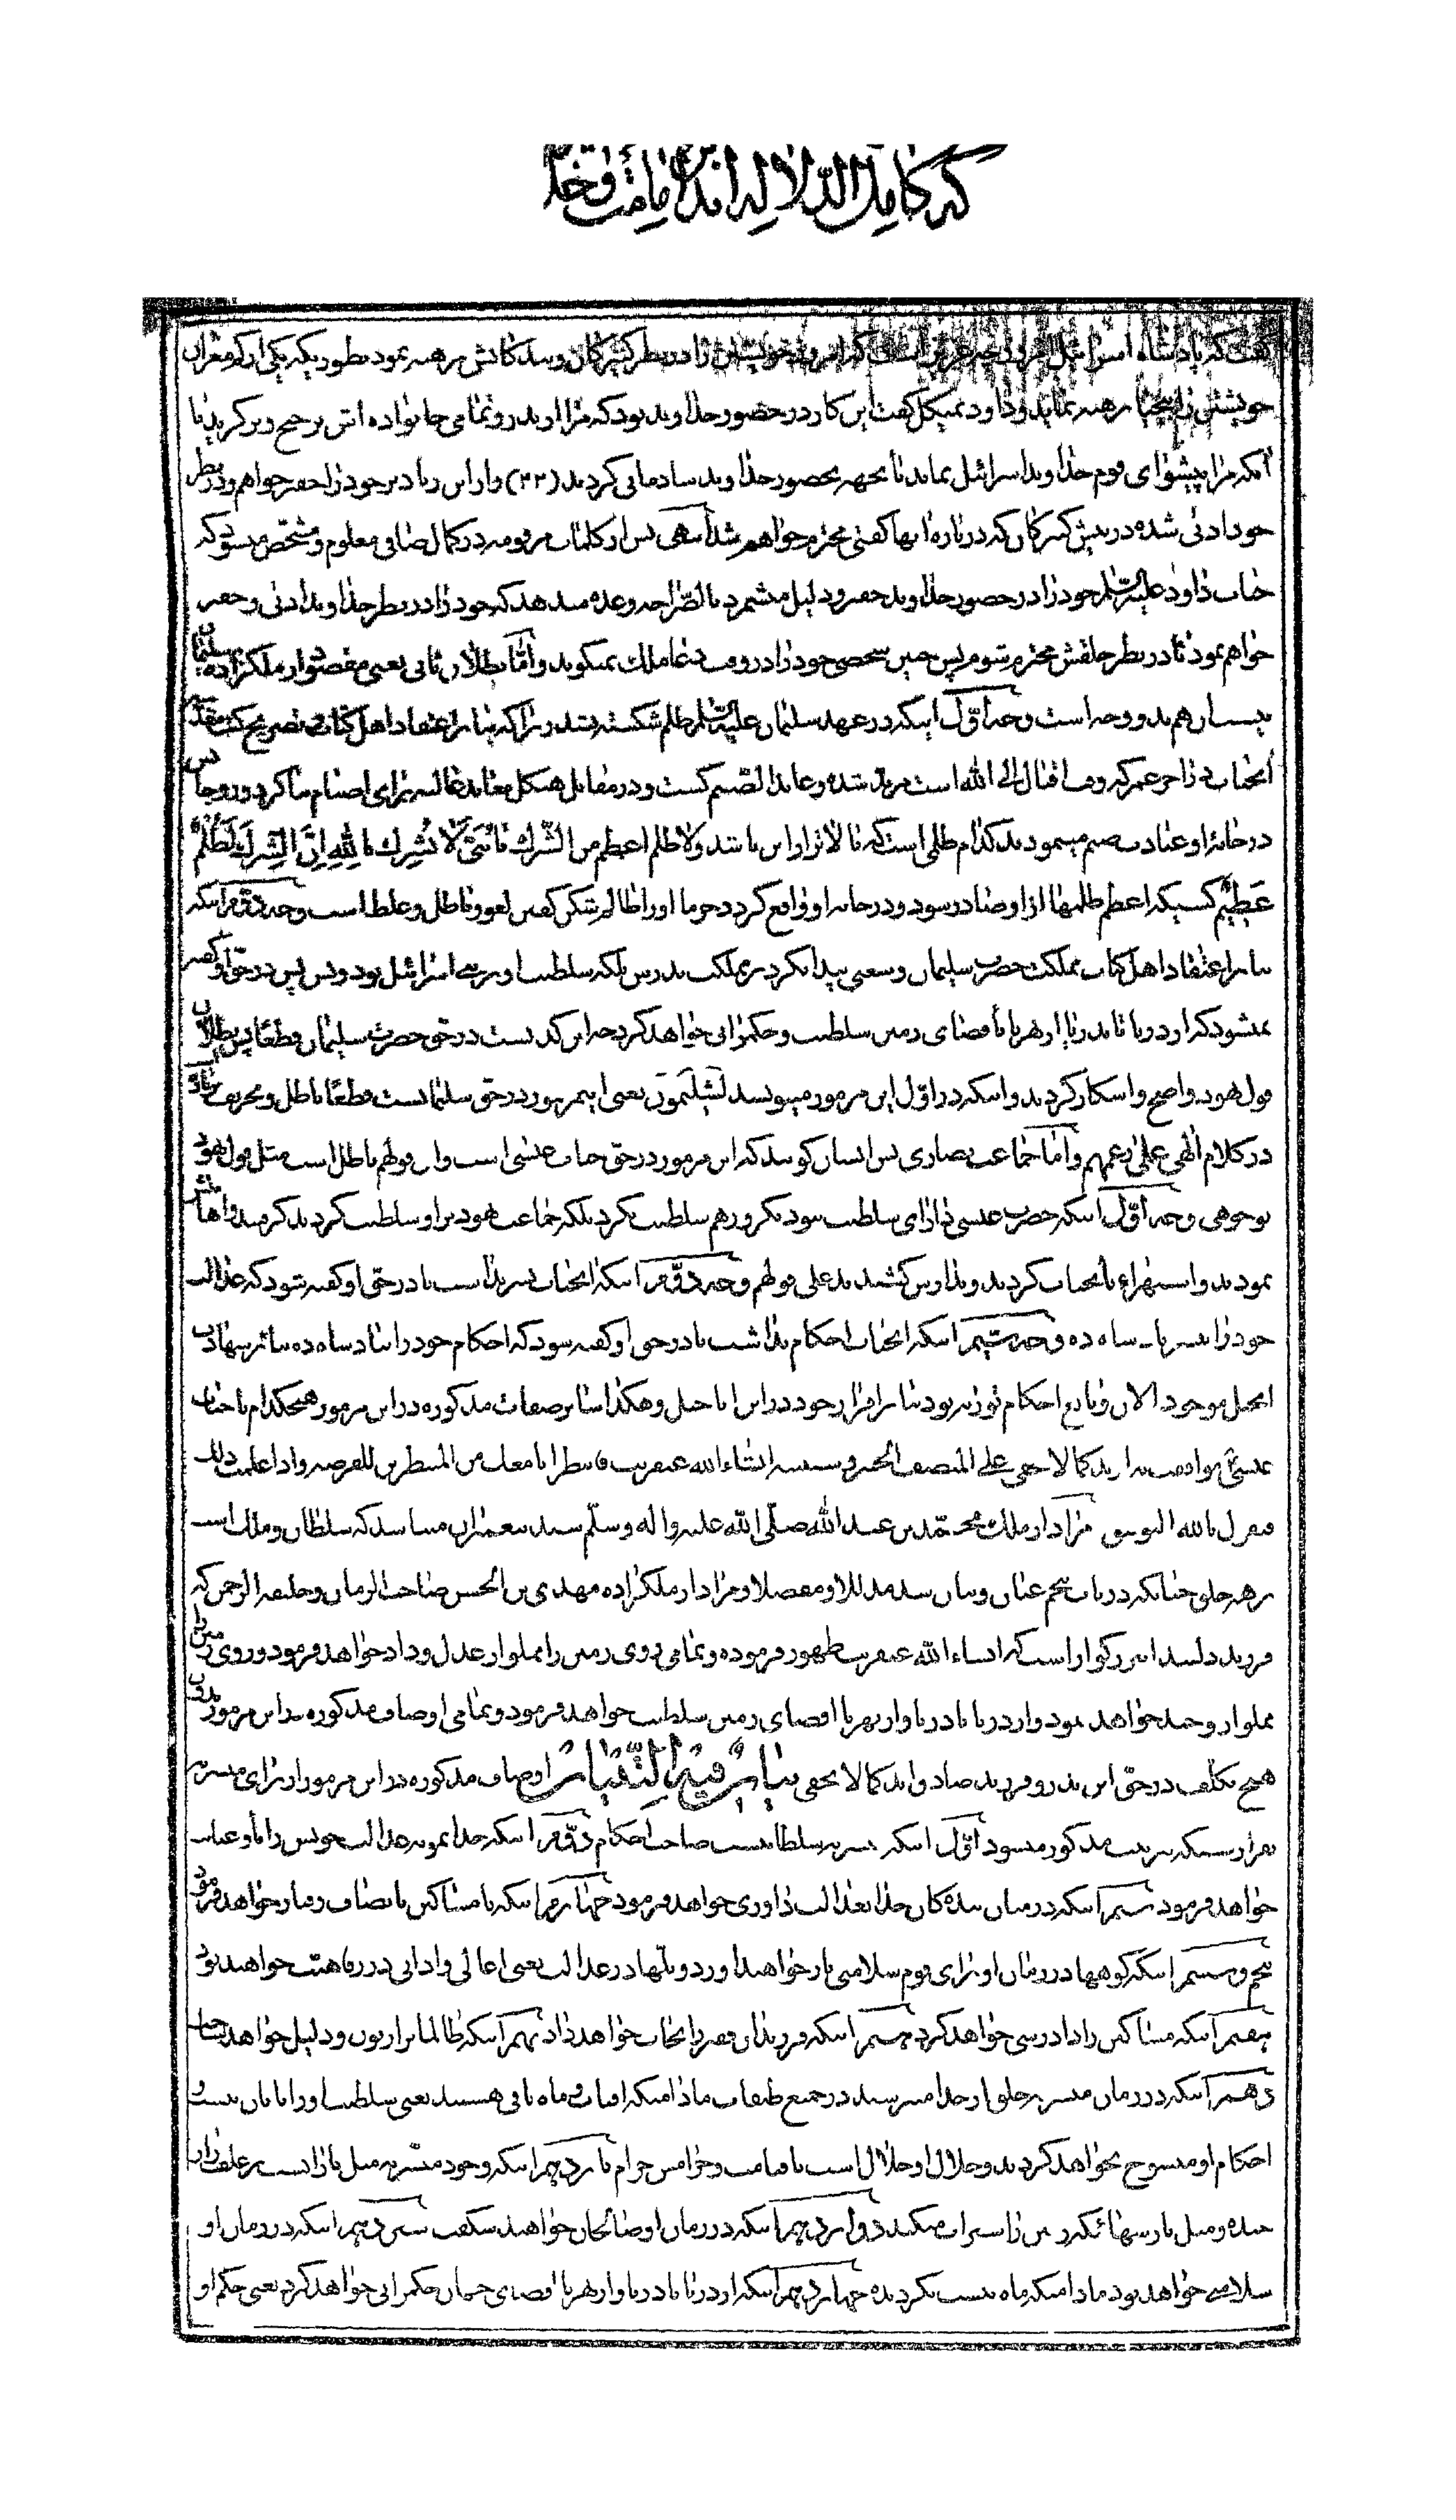 که کامل الدلاله اند بر امامت و خلا
گفت که پادشاه اسرائیل امروز چه عزیز است که امروز خویشتن را در نظر کنیزکان و بندگانش برهنه نمود بطوریکه یکی از کم مغزان
خویشتن را بیحیا برهنه نماید و داود بمیکل گفت این کار در حضور خداوند بود که مرا از پدر و تمامی خانواده اش ترجیح داده برگزید تا
آنکه مرا پیشوای قوم خداوند اسرائیل نماید تا بجهه بحضور خداوند شادمانی کردید (۲۲) و از این زیاد تر خود را حقیر خواهم و در نظر
خود ادنی شده در پیش کنیزکان که درباره آنها گفتی محترم خواهم شد انتهی پس از کلمات مرقومه در کمال صافی معلوم و مشخص میشود که
جناب داود علیه السلام خود را در حضور خداوند حقیر و ذلیل میشمرد بالصراحه وعده میدهد که خود را در نظر خداوند ادنی و حقیر
خواهم نمود تا در نظر خلقش محترم شوم پس چنین شخصی خود را در وقت دعا ملک نمیگوید و اما بطلان ثانی یعنی مقصود از ملکزاده سلیمان
نیست آن هم بدو وجه است وجه اول اینکه در عهد سلیمان علیه السلام ظلم شکسته نشد زیرا که بنا بر اعتقاد اهل کتاب و تصریح کتب مقدسه
آنجناب در آخر عمر که وقت اقبال الی الله است مرتد شده و عابد الصنم گشت و در مقابل هیکل معابد عالیه برای اصنام بنا کرد و زوجاتش
در خانه او عبادت صنم مینمودند کدام ظلمی است که بالاتر از این باشد و لا ظلم اعظم من الشرک یا بنی لا تشرک بالله ان الشرک لظلم
عظیم کسیکه اعظم ظلمها از او صادر شود و در خانه او واقع گردد چرا او را ظالم شکن گفتن لغو و باطل و غلط است وجه دوم اینکه
بنا بر اعتقاد اهل کتاب مملکت حضرت سلیمان وسعتی پیدا نکرد بر مملکت پدرش بلکه سلطنت او بر بنی اسرائیل بود و بس پس در حق او گفته
نمیشود که از دریا تا بدریا و از نهر تا باقصای زمین سلطنت و حکمرانی خواهد کرد چرا این کذب است در حق حضرت سلیمان قطعا پس بطلان
قول یهود واضح و آشکار گردید و اینکه در اول این مزمور مینویسد لشلیمون یعنی این مزمور در حق سلیمانست قطعا باطل و تحریف و زیاده
در کلام الهی علی زعمهم و اما جماعت نصاری پس ایشان گویند که این مزمور در حق جناب عیسی است و این قول هم باطل است مثل قول یهود
بوجوهی وجه اول اینکه حضرت عیسی دارای سلطنت نبود یکروز هم سلطنت نکرد بلکه جماعت یهود بر او سلطنت کردند گرفتند و اهانتش
نمودند و استهزاء بآنجناب کردند و بدارش کشیدند علی قولهم وجه دوم اینکه آنجناب پسر نداشت تا در حق او گفته شود که عدالت
خود را به پسر پادشاه ده وجه سیم اینکه آنجناب احکام نداشت تا در حق او گفته شود که احکام خود را بپادشاه ده بنابر شهادت
انجیل موجود الان و تابع احکام توریه بود بنا بر اقرار خود در این اناجیل و هکذا سایر صفات مذکوره در این مزمور هیچکدام با جناب
عیسی موافقت ندارند کما لا یخفی علی المنصف الخبیر و سنبینه انشاء الله عنقریب فانتظر انا معک من المنتظرین للفرصه و اذا علمت ذلک
فنقول بالله التوفیق مراد از ملک محمد بن عبد الله صلی الله علیه و اله و سلم سید پیغمبران میباشد که سلطان و ملک است
بر همه خلق چنانکه در باب پنجم عیان و بیان شد مدللا و مفصلا و مراد از ملکزاده مهدی بن الحسن صاحب الزمان و خلیفه الرحمن که
فرزند دلبند آن بزرگوار است که انشاء الله عنقریب ظهور فرموده و تمامی روی زمین را مملو از عدل و داد خواهد فرمود و روی زمین را
مملو از توحید خواهد نمود و از دریا تا دریا و از نهر تا اقصای زمین سلطنت خواهد فرمود و تمامی اوصاف مذکوره در این مزمور بدون
هیچ تکلف در حق این پدر و فرزند صادق آید کما لا یخفی بیان فیه التبیان اوصاف مذکوره در این مزمور از برای مبشر به
بقرار یست که بترتیب مذکور میشود اول اینکه مبشر به سلطانیست صاحب احکام دوم اینکه خدا نمونه عدالت خویش را باو عنایت
خواهد فرمود سیم اینکه در میان بندگان خدا بعدالت داوری خواهد فرمود چهارم اینکه با مساکین بانصاف رفتار خواهد فرمود
پنجم و ششم اینکه کوهها در زمان او برای قوم سلامتی بار خواهند آورد و تلها در عدالت یعنی اعالی و ادانی در رفاهیت خواهند بود
هفتم اینکه مساکین را دادرسی خواهد کرد هشتم اینکه فرزندان فقیر را نجات خواهد داد نهم اینکه ظالمان را زبون و ذلیل خواهد ساخت
دهم اینکه در زمان مبشر به خلق از خدا میترسند در جمیع طبقات مادامیکه آفتاب و ماه باقی هستند یعنی سلطنت او را پایان نیست و
احکام او منسوخ نخواهد گردید و حلال او حلال است تا قیامت و حرامش حرام یازدهم اینکه وجود مبشر به مثل باران است بر علف زار
چیده و مثل بارشهائیکه زمین را سیراب میکند دوازدهم اینکه در زمان او صالحان خواهند شکفت سیزدهم اینکه در زمان او
سلامتی خواهد بود مادامیکه ماه نیست نگردیده چهاردهم اینکه از دریا تا دریا و از نهر تا اقصای جهان حکمرانی خواهد کرد یعنی حکم او